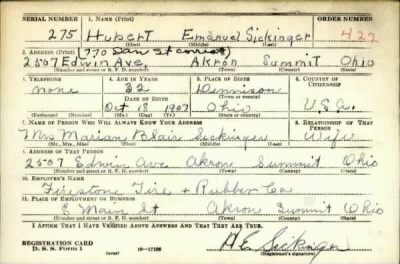 SERIAL NUMBER 1. NAME (Print) ORDER NUMBER
275 Hubert Emanuel Sickinger 422
(First) (Middle) (Last)
2. ADDRESS (Print) 770
2507 Edwin Ave. Akron Summit Ohio
(Number and street or R. F. D. number) (Town) (County) (State)
3. TELEPHONE 4. AGE IN YEARS 5. PLACE OF BIRTH 6. COUNTRY OF CITIZENSHIP
none 32 Dennison
DATE OF BIRTH (Town or county)
Oct 1907 Ohio U.S.A.
(Exchange) (Number) (Mo.) (Day) (Yr.) (State or country)
7. NAME OF PERSON WHO WILL ALWAYS KNOW YOUR ADDRESS 8. RELATIONSHIP OF THAT PERSON
Mrs Marian Blair Sickinger Wife
(Mr., Mrs., Miss) (First) (Middle) (Last)
9. ADDRESS OF THAT PERSON
2507 Edwin Ave Akron Summit Ohio
(Number and street or R. F. D. number) (Town) (County) (State)
10. EMPLOYER'S NAME
Firestone Tire + Rubber Co
11. PLACE OF EMPLOYMENT OR BUSINESS
S Main St Akron Summit Ohio
(Number and street or R. F. D. number) (Town) (County) (State)
I AFFIRM THAT I HAVE VERIFIED ABOVE ANSWERS AND THAT THEY ARE TRUE.
REGISTRATION CARD
D. S. S. FORM 1 (over) 16-17105 H E Sickinger
(Registrant's signature)